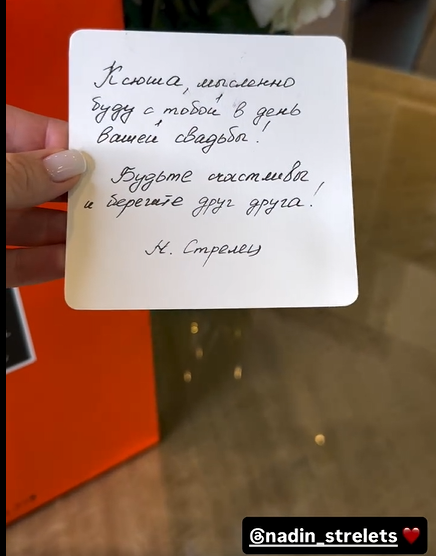 Ксюша, мысленно
буду с тобой в день
вашей свадьбы!
Будьте счастливы
и берегите друг друга!
Н. Стрелец
@nadin_strelets ❤️